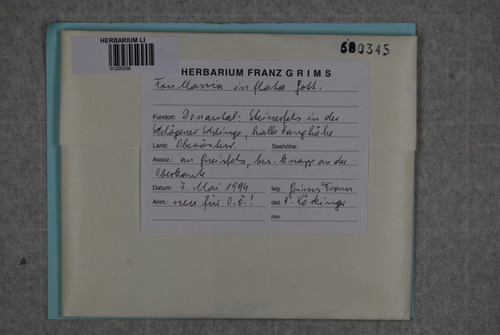 HERBARIUM LI
01200256
680345
HERBARIUM FRANZ GRIMS
Frullania inflata Gott.
Fundort: Donautal: Steinerfels in der
Schlögener Schlinge, halbe Hanghöhe
Land: Oberösterr Seehöhe:
Assoz.: an Gneisfels, bes. knapp an der
Oberkante
Datum: 7. Mai 1994 leg. Grims Franz
Anm.: neu für O.Ö.! det.
rev.